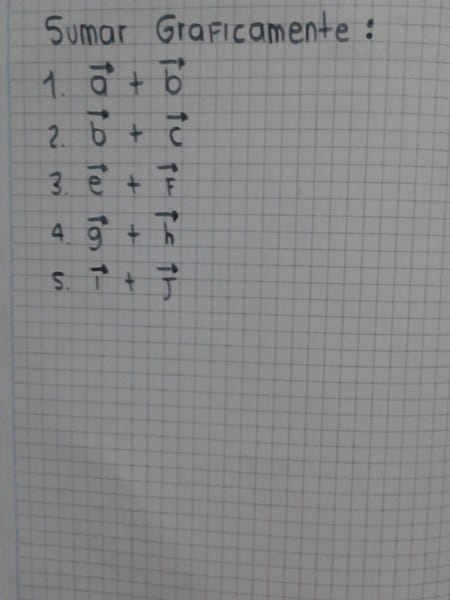 Sumar Graficamente:
1. a⃗ + b⃗
2. b⃗ + c⃗
3. e⃗ + F⃗
4. g⃗ + h⃗
5. i⃗ + J⃗